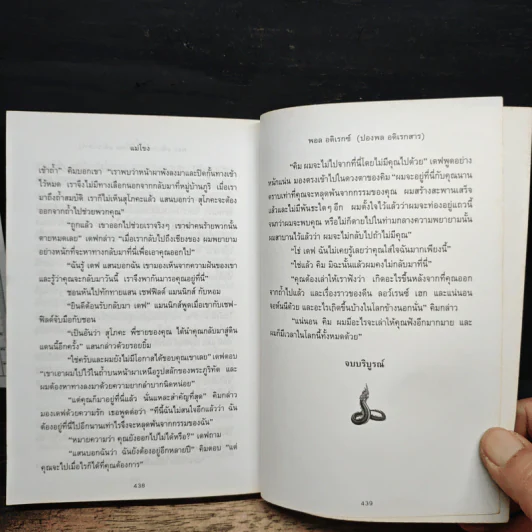 แม่โขง
เข้าถ้ำ” คิมบอกเขา “เราพบว่าหน้าผาพังลงมาและปิดกั้นทางเข้า
ไว้หมด เราจึงไม่มีทางเลือกนอกจากกลับมาที่หมู่บ้านภูริ เมื่อเรา
มาถึงถ้ำสมบัติ เราก็ไม่เห็นสุโภคะแล้ว แสนบอกว่า สุโภคะจะต้อง
ออกจากถ้ำไปช่วยพวกคุณ”
“ถูกแล้ว เขาออกไปช่วยเราจริงๆ เขาฆ่าคนร้ายพวกนั้น
ตายหมดเลย” เดฟกล่าว “เมื่อเรากลับไปถึงเชียงของ ผมพยายาม
อย่างหนักที่จะหาทางกลับมาที่นี่เพื่อเอาคุณออกไป”
“ฉันรู้ เดฟ แสนบอกฉัน เขามองเห็นจากความฝันของเขา
และรู้ว่าคุณจะกลับมาวันนี้ เราจึงพากันมารออยู่ที่นี่”
ซอนหันไปทักทายแสน เชฟฟิลด์ แมนนิกส์ กับหอม
“ยินดีต้อนรับกลับมา เดฟ” แมนนิกส์พูดเมื่อเขากับเชฟ-
ฟิลด์จับมือกับซอน
“เป็นอันว่า สุโภคะ พี่ชายของคุณ ได้นำคุณกลับมาสู่ดิน
แดนนี้อีกครั้ง” แสนกล่าวด้วยรอยยิ้ม
“ใช่ครับและผมยังไม่มีโอกาสได้ขอบคุณเขาเลย” เดฟตอบ
“เขาเอาผมไปไว้ในถ้ำบนหน้าผาเหนือรูปสลักของพระภูริทัต และ
ผมต้องหาทางลงมาด้วยความยากลำบากนิดหน่อย”
“แต่คุณก็มาอยู่ที่นี่แล้ว นั่นแหละสำคัญที่สุด” คิมกล่าว
มองเดฟด้วยความรัก เขาพูดต่อว่า “ทีนี้ฉันไม่สนใจอีกแล้วว่า ฉัน
ต้องอยู่ที่นี่ไปอีกนานเท่าไรจึงจะหลุดพ้นจากกรรมของฉัน”
“หมายความว่า คุณยังออกไปไม่ได้หรือ?” เดฟถาม
“แสนบอกฉันว่า ฉันยังต้องอยู่อีกหลายปี” คิมตอบ “แต่
คุณจะไปเมื่อไรก็ได้ที่คุณต้องการ”
438
พอล อดิเรกซ์ (ปองพล อดิเรกสาร)
“คิม ผมจะไม่ไปจากที่นี่โดยไม่มีคุณไปด้วย” เดฟพูดอย่าง
หนักแน่น มองตรงเข้าไปในดวงตาของคิม “ผมจะอยู่ที่นี่กับคุณนาน
ตราบเท่าที่คุณจะหลุดพ้นจากกรรมของคุณ ผมสร้างสะพานเสร็จ
แล้วและไม่มีพันธะใดๆ อีก ผมตั้งใจไว้แล้วว่าผมจะท่องอยู่แถวนี้
จนกว่าผมจะพบคุณ หรือไม่ก็ตายไปในท่ามกลางความพยายามนั้น
ผมสาบานไว้แล้วว่า ผมจะไม่กลับไปถ้าไม่มีคุณ”
“โธ่ เดฟ ฉันไม่เคยรู้เลยว่าคุณใส่ใจฉันมากเพียงนี้”
“ใช่แล้ว คิม มิฉะนั้นแล้วผมคงไม่กลับมาที่นี่”
“คุณต้องเล่าให้เราฟังว่า เกิดอะไรขึ้นหลังจากที่คุณออก
จากถ้ำไปแล้ว และเรื่องราวของดีน ลอว์เรนซ์ เฮก และแน่นอน
จงพันนีด้วย และอะไรเกิดขึ้นบ้างในโลกข้างนอกนั่น” คิมกล่าว
“แน่นอน คิม ผมมีอะไรจะเล่าให้คุณฟังอีกมากมาย และ
ผมก็มีเวลาในโลกนี้ทั้งหมดด้วย”
จบบริบูรณ์
439